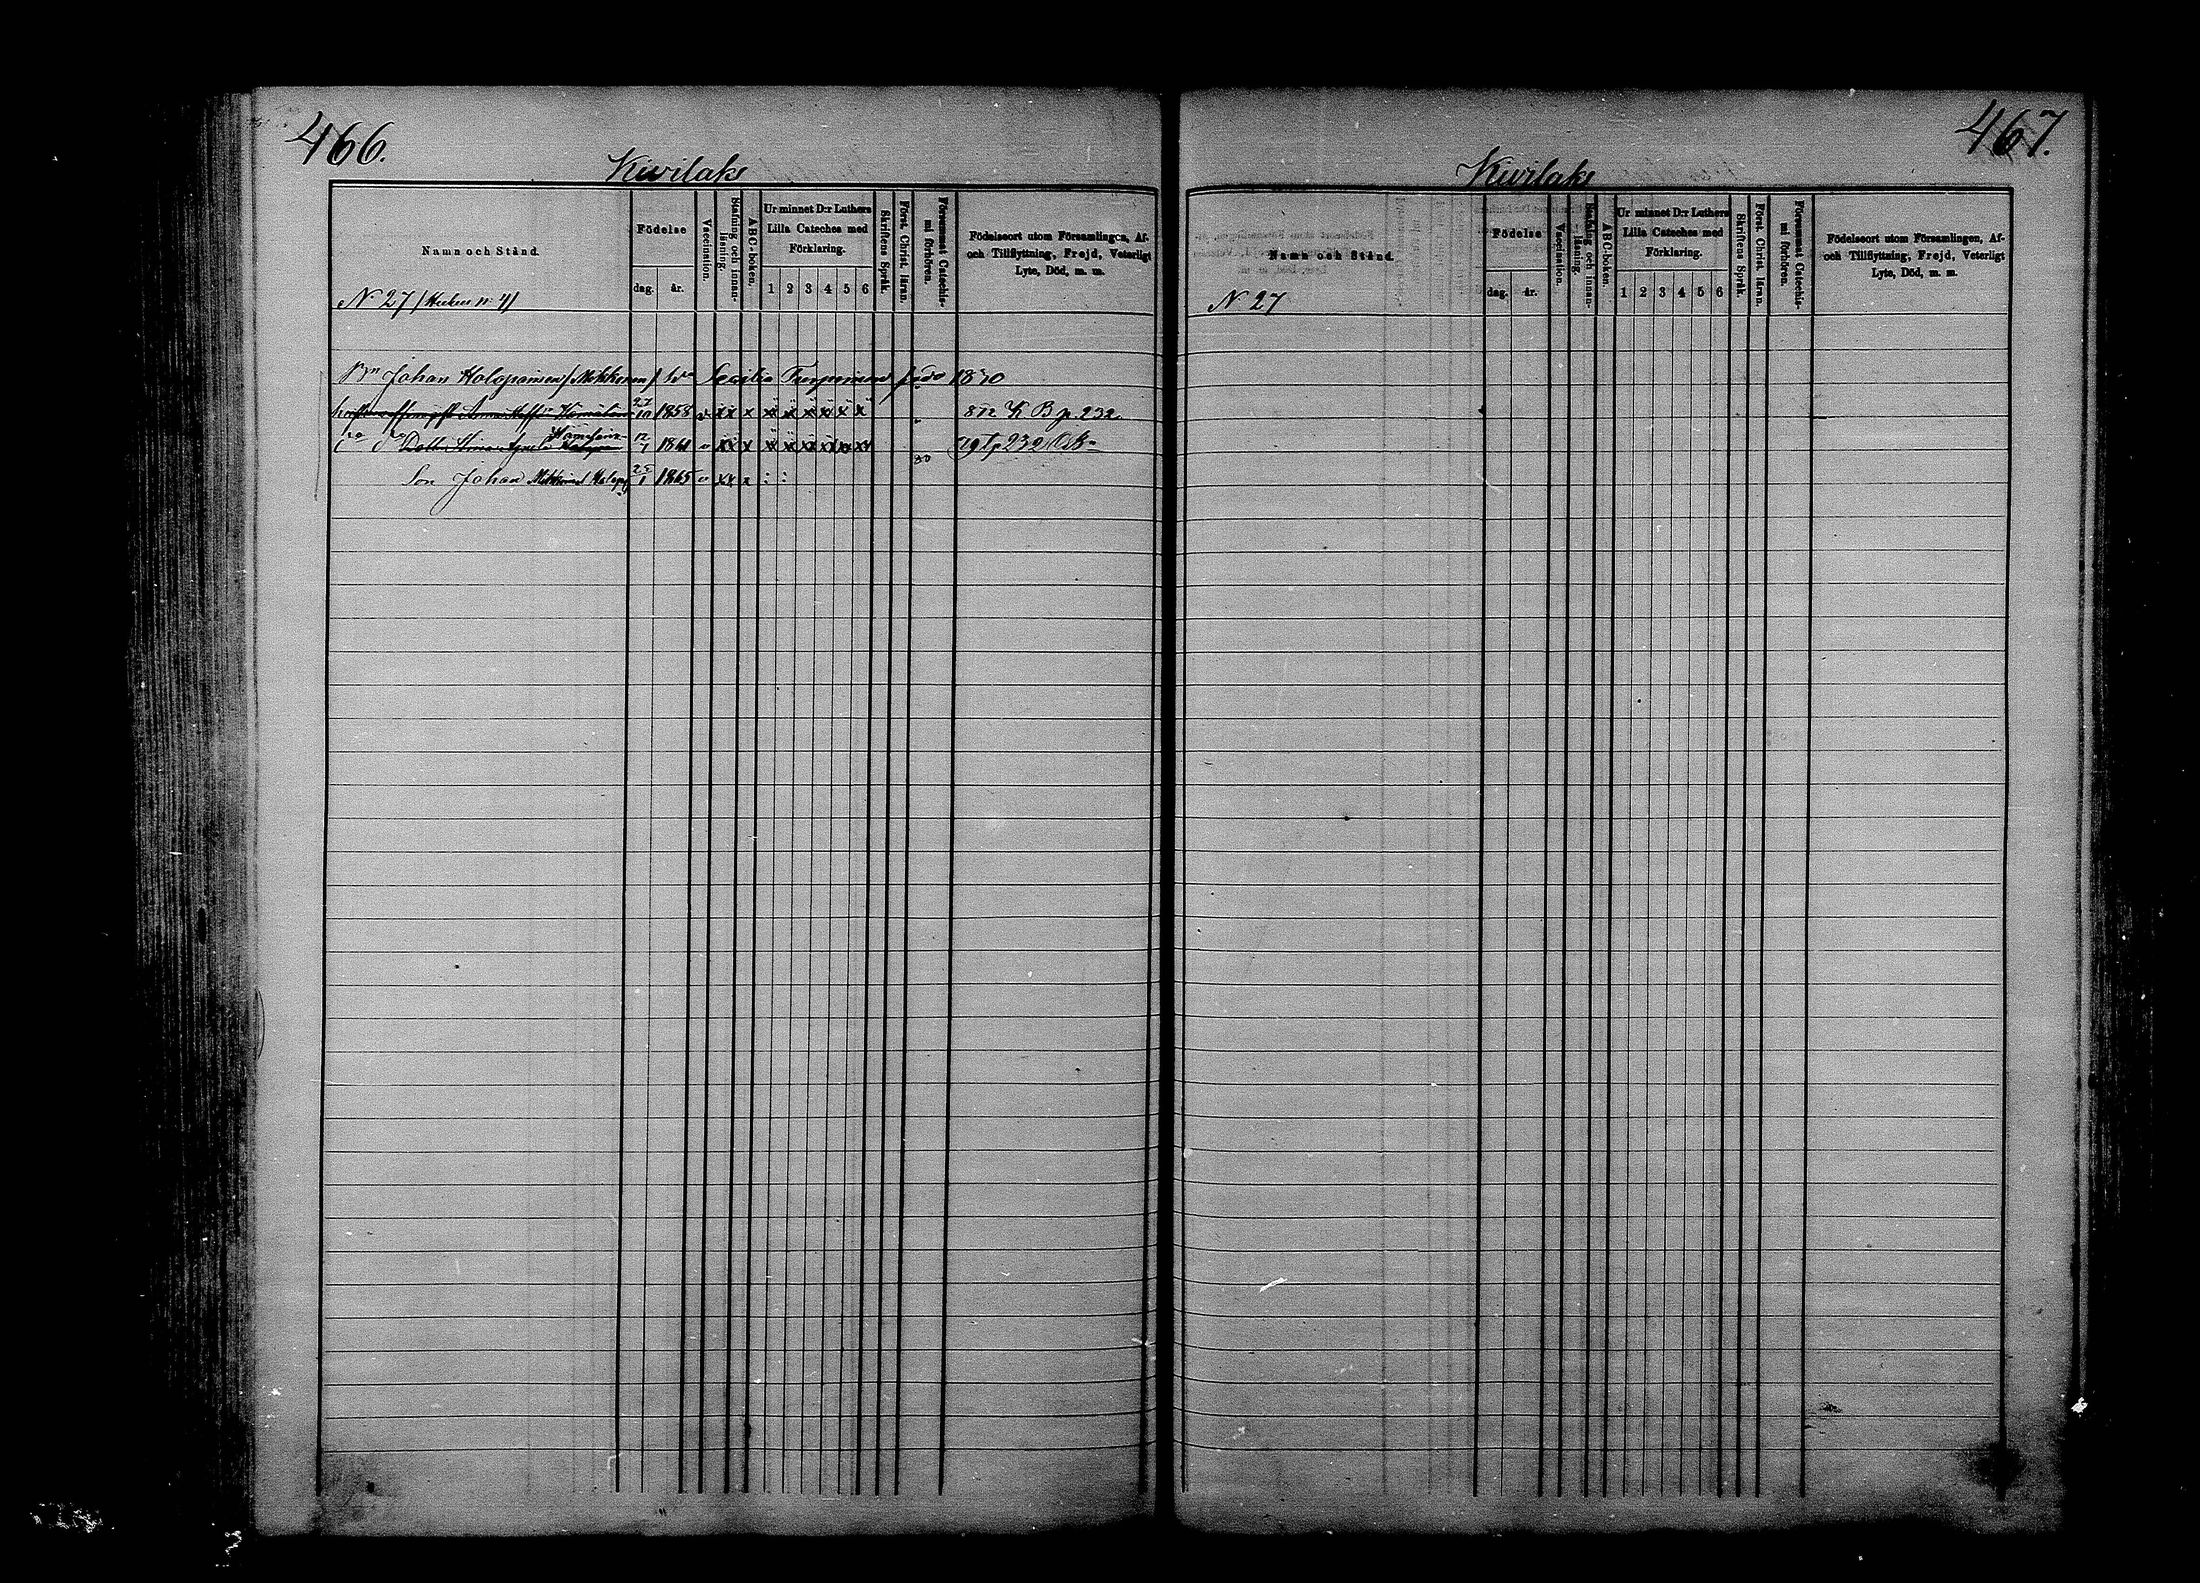 466.
Kivilaks
Namn och Stånd.
Födelse
dag. år.
Vaccination.
Stafning och innanläsning.
ABC-boken.
Ur minnet D:r Luthers
Lilla Cateches med
Förklaring.
1 2 3 4 5 6
Skriftens Språk.
Först. Christ. läran.
Försummat Catechismi förhören.
Födelseort utom Församlingen, Af-
och Tillflyttning, Frejd, Veterligt
Lyte, Död, m. m.
N 27
Johan Holopainen / Mikkinen / 1870
27/10 1858 v xx x x x x x x x K B p. 232
Hämäläin
12/1 1861 v xx x x x x x x x p 232
Son Johan 25/1 1865 v xx x : :
467.
Kivilaks
Namn och Stånd.
Födelse
dag. år.
Vaccination.
Stafning och innanläsning.
ABC-boken.
Ur minnet D:r Luthers
Lilla Cateches med
Förklaring.
1 2 3 4 5 6
Skriftens Språk.
Först. Christ. läran.
Försummat Catechismi förhören.
Födelseort utom Församlingen, Af-
och Tillflyttning, Frejd, Veterligt
Lyte, Död, m. m.
N 27